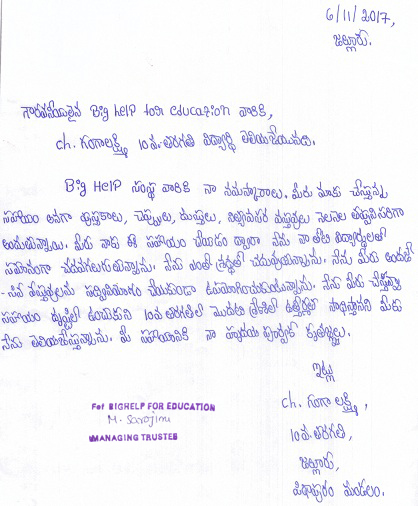 6/11/2017,
జల్లూరు.
గౌరవనీయులైన Big help for education వారికి,
ch. గంగాలక్ష్మి 10వ. తరగతి విద్యార్థి తెలియజేయునది.
Big HelP సంస్థ వారికి నా నమస్కారాలు. మీరు మాకు చేస్తున్న
సహాయం అనగా పుస్తకాలు, చెప్పులు, దుస్తులు, నిత్యావసర వస్తువులు నెలనెల తప్పనిసరిగా
అందుతున్నాయి. మీరు నాకు ఈ సహాయం చేయడం ద్వారా నేను నా తోటి విద్యార్థులతో
సమానంగా చదవగలుగుతున్నాను. నేను ఎంతో శ్రద్ధతో చదువుతున్నాను. నేను మీరు అందజే
-సిన వస్తువులను సద్వినియోగం చేయకుండా ఉపయోగించుకుంటున్నాను. నేను మీరు చేస్తున్న
సహాయం దృష్టిలో ఉంచుకుని 10వ తరగతిలో మొదటి శ్రేణిలో ఉత్తీర్ణత సాధిస్తానని మీకు
నేను తెలియజేస్తున్నాను. మీ సహాయానికి నా హృదయ పూర్వక కృతజ్ఞతలు.
ఇట్లు
ch. గంగా లక్ష్మి,
10వ. తరగతి,
జల్లూరు,
పిఠాపురం మండలం.
For BIGHELP FOR EDUCATION
M. Sarojini
MANAGING TRUSTEE